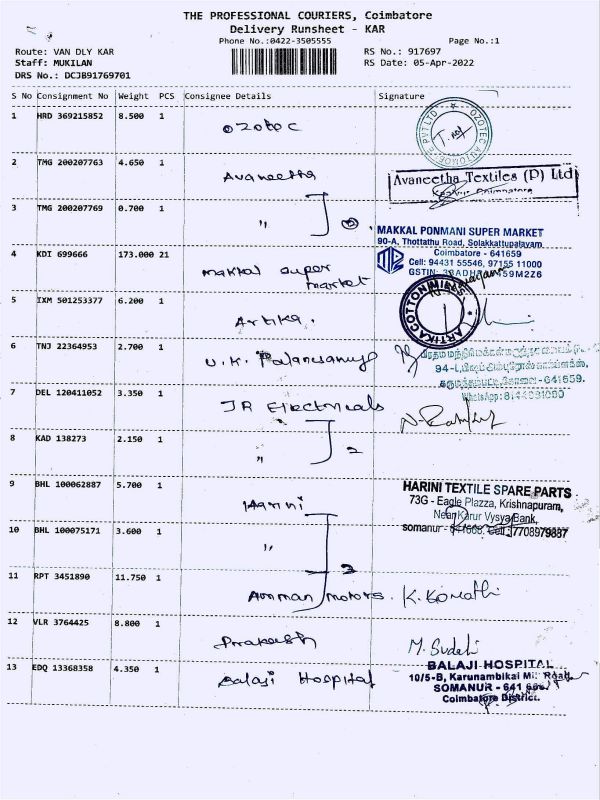 THE PROFESSIONAL COURIERS, Coimbatore
Delivery Runsheet - KAR
Phone No.:0422-3505555
Page No.:1
Route: VAN DLY KAR
RS No.: 917697
Staff: MUKILAN
RS Date: 05-Apr-2022
DRS No.: DCJB91769701
S No Consignment No Weight PCS Consignee Details Signature
1 HRD 369215852 8.500 1 Ozotec
OZOTEC AUTOMOBILE PVT LTD
2 TMG 200207763 4.650 1 Avaneetha
Avaneetha Textiles (P) Ltd
Coimbatore
3 TMG 200207769 0.700 1 "
MAKKAL PONMANI SUPER MARKET
90-A, Thottathu Road, Solakkattupalayam,
Coimbatore - 641659
Cell: 94431 55546, 97155 11000
GSTIN:
4 KDI 699666 173.000 21 makkal super
market
5 IXM 501253377 6.200 1 Artika.
ARTIKA COTTON MILLS
6 TNJ 22364953 2.700 1 U.K.
- 641659.
WhatsApp:
7 DEL 120411052 3.350 1 JR Electricals
8 KAD 138273 2.150 1 " 2
9 BHL 100062887 5.700 1 Harini
HARINI TEXTILE SPARE PARTS
73G - Eagle Plazza, Krishnapuram,
Near Karur Vysya Bank,
somanur - 641668. Cell : 7708979887
10 BHL 100075171 3.600 1 "
11 RPT 3451890 11.750 1 Amman motors K. Komathi
12 VLR 3764425 8.800 1 Prakash M. Sudehi
13 EDQ 13368358 4.350 1 Balaji Hospital
BALAJI HOSPITAL
10/5-B, Karunambikai Mill Road,
SOMANUR - 641
Coimbatore District.